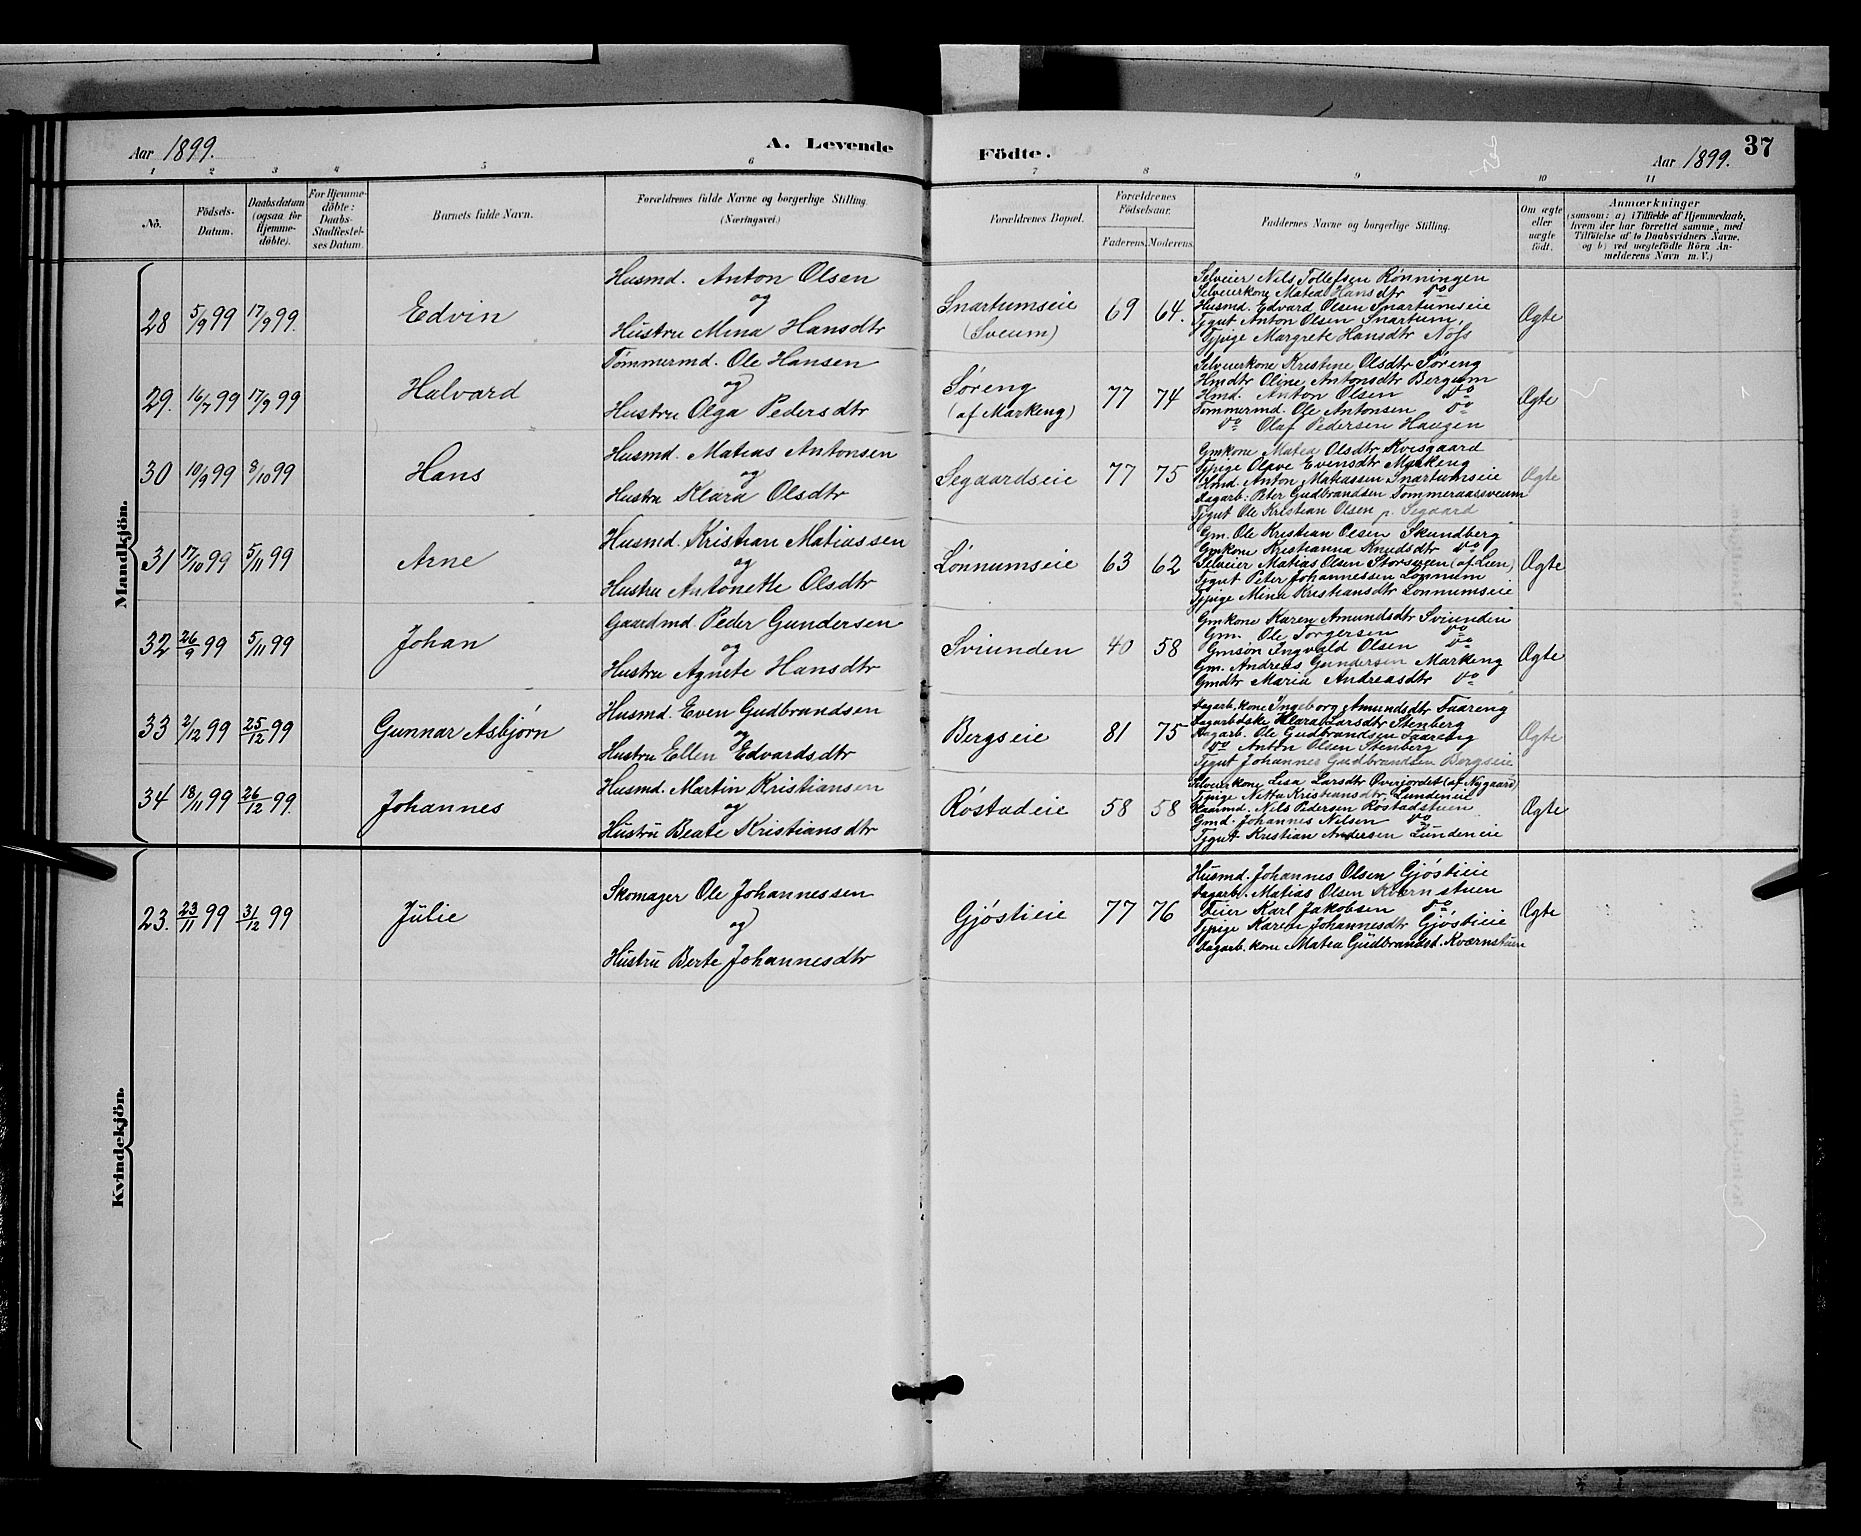 Aar 1899.
A. Levende
Födte.
Aar 1899.
37
1 2 3 4 5 6 7 8 9 10 11
No.
Födsels-
Datum.
Daabsdatum
(ogsaa for
Hjemme-
döbte).
For Hjemme-
döbte:
Daabs-
Stadfæstel-
ses Datum.
Barnets fulde Navn.
Forældrenes fulde Navne og borgerlige Stilling.
(Næringsvei.)
Forældrenes Bopæl.
Forældrenes
Födselsaar.
Faderens. Moderens.
Faddernes Navne og borgerlige Stilling.
Om ægte
eller
uægte
födt.
Anmærkninger
(saasom: a) i Tilfælde af Hjemmedaab,
hvem der har forrettet samme, med
Tilföielse af to Daabsvidners Navne,
og b) ved uægtefödte Börn An-
melderens Navn m. V.)
Mandkjön.
28 5/9 99 17/9 99. Edvin
Husmd. Anton Olsen
og
Hustru Mina Hansdtr
Snartumseie
(Sveum)
69 64.
Selveier Nils Tollefsen Rønningen
Selveierkone Matea Hansdtr do
Husmd. Edvard Olsen Snartumseie
Tjgut Anton Olsen Snartum
Tjpige Margrete Hansdtr Nøss
Ægte
29. 16/7 99 17/9 99 Halvard
Tømmermd. Ole Hansen
og
Hustru Olga Pedersdtr
Søreng
(af Markeng)
77 74
Selveierkone Kristine Olsdtr Søreng
Hmdtr Oline Antonsdtr Bergum
Hmd. Anton Olsen do
Tømmermd. Ole Antonsen do
do Olaf Pedersen Haugen
Ægte
30 10/9 99 8/10 99 Hans
Husmd. Matias Antonsen
og
Hustru Klara Olsdtr
Segaardseie
77 75
Gmkone Matea Olsdtr Kvesgaard
Tjpige Olave Evensdtr Markeng
Hmd. Anton Matiassen Snartumseie
Dagarb: Peter Gudbrandsen Tommeraassveum
Tjgut Ole Kristian Olsen p. Segaard
Ægte
31 17/10 99 5/11 99 Arne
Husmd. Kristian Matiassen
og
Hustru Antonette Olsdtr
Lønnumseie
63 62
Gm. Ole Kristian Olsen Skundberg
Gmkone Kristianna Knudsdtr do
Selveier Matias Olsen Storsveen (af Lien)
Tjgut Peter Johannessen Lønnum
Tjpige Mina Kristiansdtr Lønnumseie
Ægte
32 26/9 99 5/11 99 Johan
Gaardmd. Peder Gundersen
og
Hustru Agnete Hansdtr
Sviunden
40 58
Gmkone Karen Amundsdtr Sviunden
Gm. Ole Torgersen do
Gmsøn Ingvald Olsen do
Gm. Andreas Gundersen Markeng
Gmdtr Maria Andreasdtr do
Ægte
33 2/12 99 25/12 99 Gunnar Asbjørn
Husmd. Even Gudbrandsen
og
Hustru Ellen Edvardsdtr
Bergseie
81 75
Dagarb. kone Ingeborg Amundsdtr Faareng
Dagarbdske Klara Larsdtr Stenberg
Dagarb. Ole Gudbrandsen Faareng
do Anton Olsen Stenberg
Tjgut Johannes Gudbrandsen Bergseie
Ægte
34 18/11 99 26/12 99. Johannes
Husmd. Martin Kristiansen
og
Hustru Beate Kristiansdtr
Røstadeie
58 58
Selveierkone Lisa Larsdtr Øverjordet (af Nygaard)
Tjpige Netta Kristiansdtr Lundeneie
Kaarmd. Nils Pedersen Røstadstuen
Gmd. Johannes Nilsen do
Tjgut Kristian Andersen Lundeneie
Ægte
Kvindekjön.
23. 23/11 99 31/12 99 Julie
Skomager Ole Johannessen
og
Hustru Berte Johannesdtr
Gjøstieie
77 76
Husmd. Johannes Olsen Gjøstieie
Dagarb. Matias Olsen Kværnstuen
Feier Karl Jakobsen do
Tjpige Karen Johannesdtr Gjøstieie
Dagarb. kone Matea Gudbrandsd. Kværnstuen
Ægte